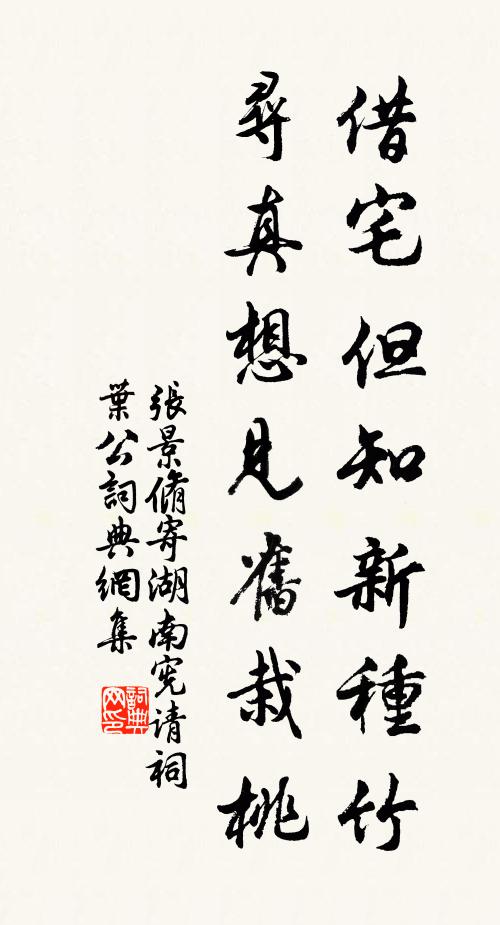 借宅但知新種竹
尋真想見舊栽桃
張景脩寄湖南宪请祠
葉公詞典網集
詞典
网印